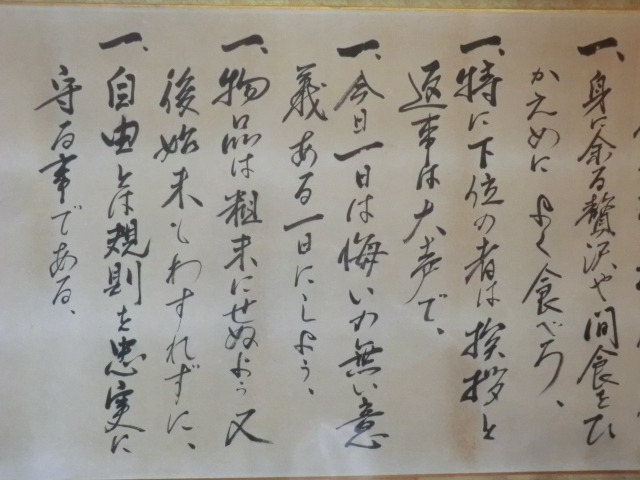 一、身に余る贅沢や間食をひ
かえめによく食べろ、
一、特に下位の者は挨拶と
返事は大声で、
一、今日一日は悔いの無い意
義ある一日にしよう、
一、物品は粗末にせぬよう又
後始末もわすれずに、
一、自由とは規則を忠実に
守る事である、